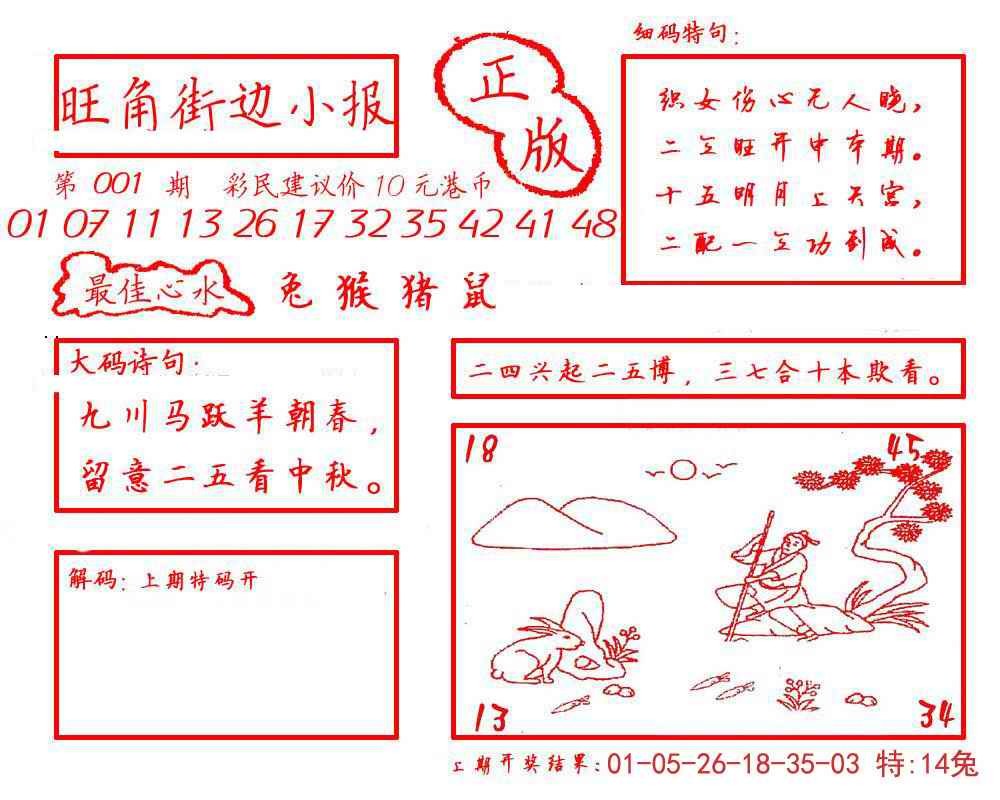 细码特句:
正版
旺角街边小报
织女伤心无人晓,
二立旺开中本期。
十五明月上天宫,
二配一立功到成。
第 001 期 彩民建议价10元港币
01 07 11 13 26 17 32 35 42 41 48
最佳心水 兔 猴 猪 鼠
大码诗句:
九川马跃羊朝春,
留意二五看中秋。
二四兴起二五博,三七合十本欺看。
18 45
解码:上期特码开
13 34
上期开奖结果:01-05-26-18-35-03 特:14兔